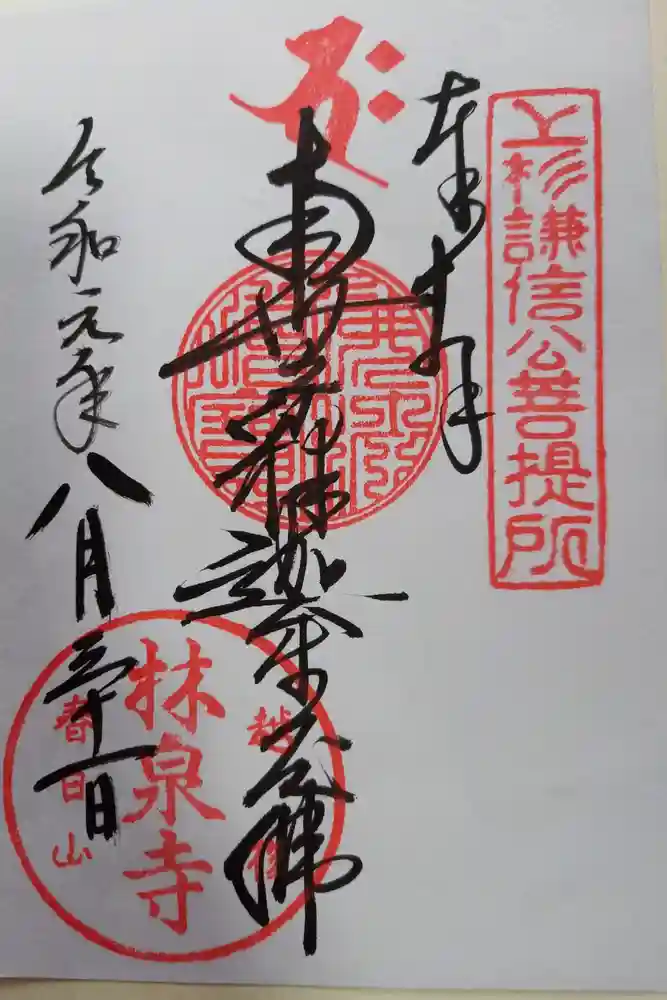 上杉謙信公菩提所
奉拝
南無釋迦牟尼佛
令和元年八月三十一日
越後
林泉寺
春日山